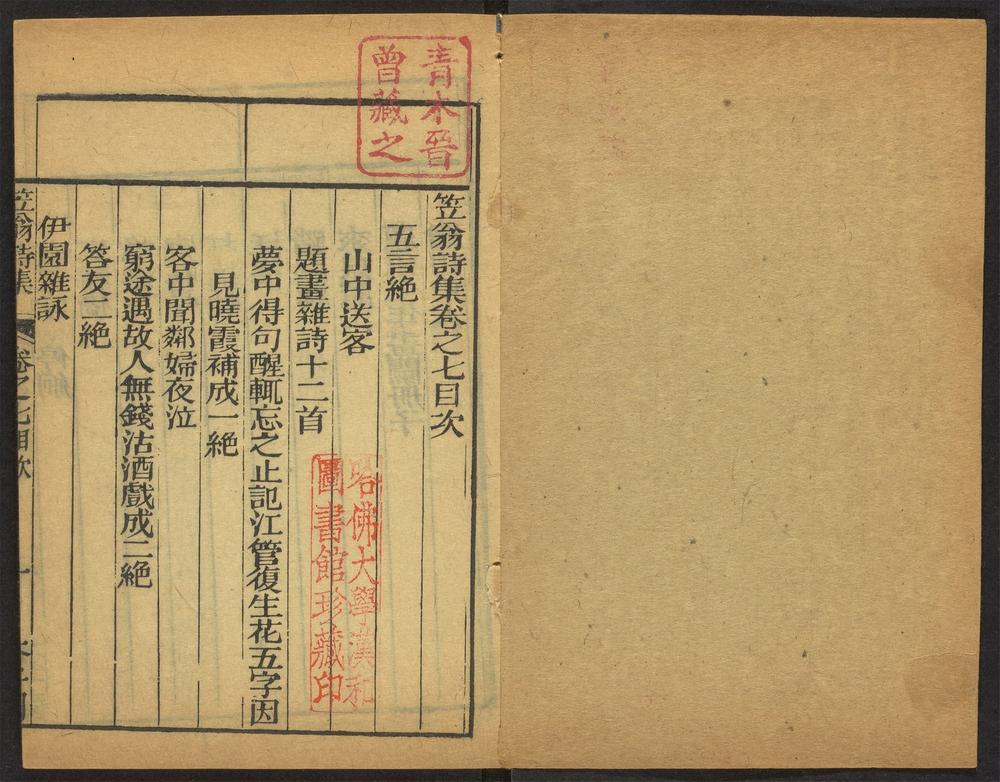 青木晉
曾藏之
笠翁詩集卷之七目次
五言絶
山中送客
題畫雜詩十二首
夢中得句醒輒忘之止記江管復生花五字因
見曉霞補成一絶
客中聞鄰婦夜泣
窮途遇故人無錢沽酒戲成二絶
答友二絶
伊園雜詠
笠翁詩集
卷之七目次
哈佛大學漢和
圖書館珍藏印